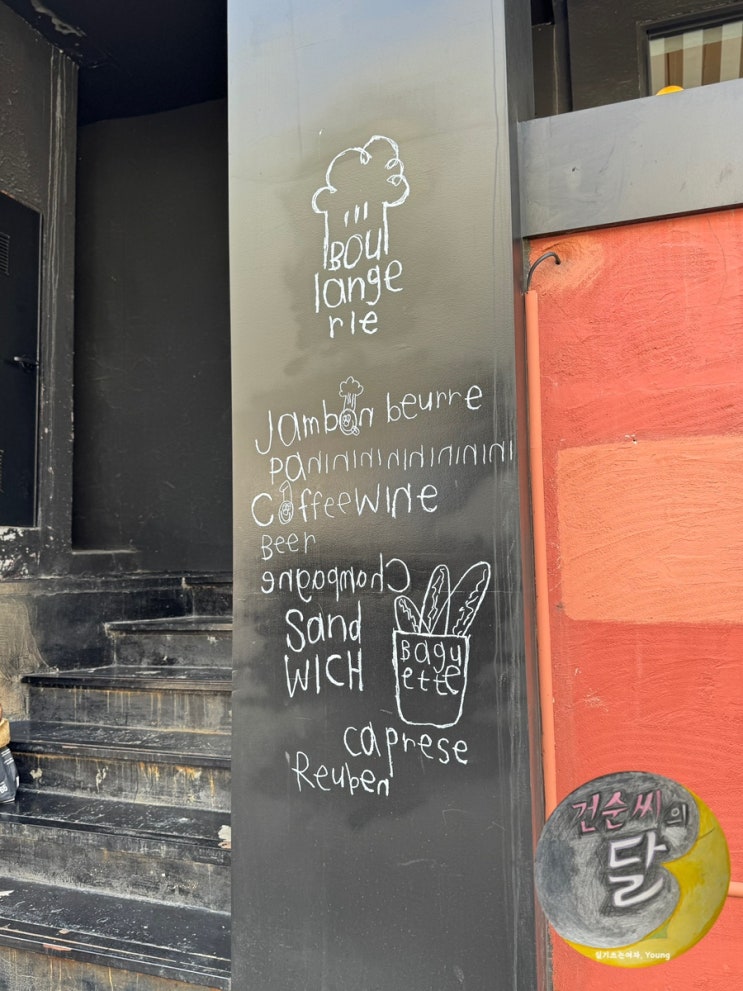 BOU
lange
rie
Jambon beurre
PANINININININININI
CoffeeWINE
Beer
Champagne
Sand
WICH
Bagu
ette
caprese
Reuben
건순씨의
달
일기쓰는여자, Young